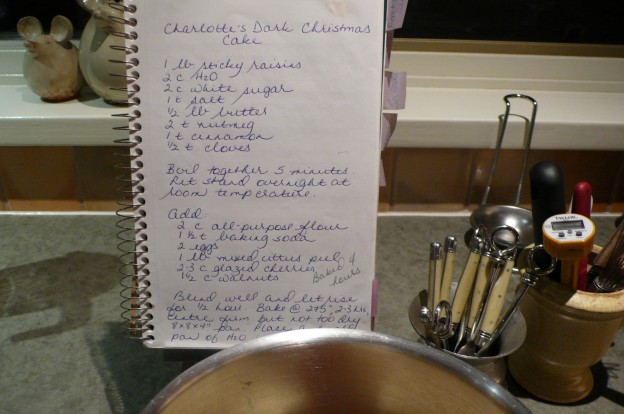 Charlotte's Dark Christmas
Cake
1 lb sticky raisins
2 c H2O
2 c white sugar
1 t salt
1/2 lb butter
2 t nutmeg
1 t cinnamon
1/2 t cloves
Boil together 5 minutes
Let stand overnight at
room temperature.
Add:
2 c all-purpose flour
1 1/2 t baking soda
2 eggs
1 lb mixed citrus peel
2-3 c glazed cherries
1 1/2 c walnuts
Baked 4
hours
Blend well and let rise
for 1/2 hour. Bake @ 275° 2-3 hrs,
centre firm but not too dry
8"x8"x4" pan. Place
pan of H2O
TAYLOR